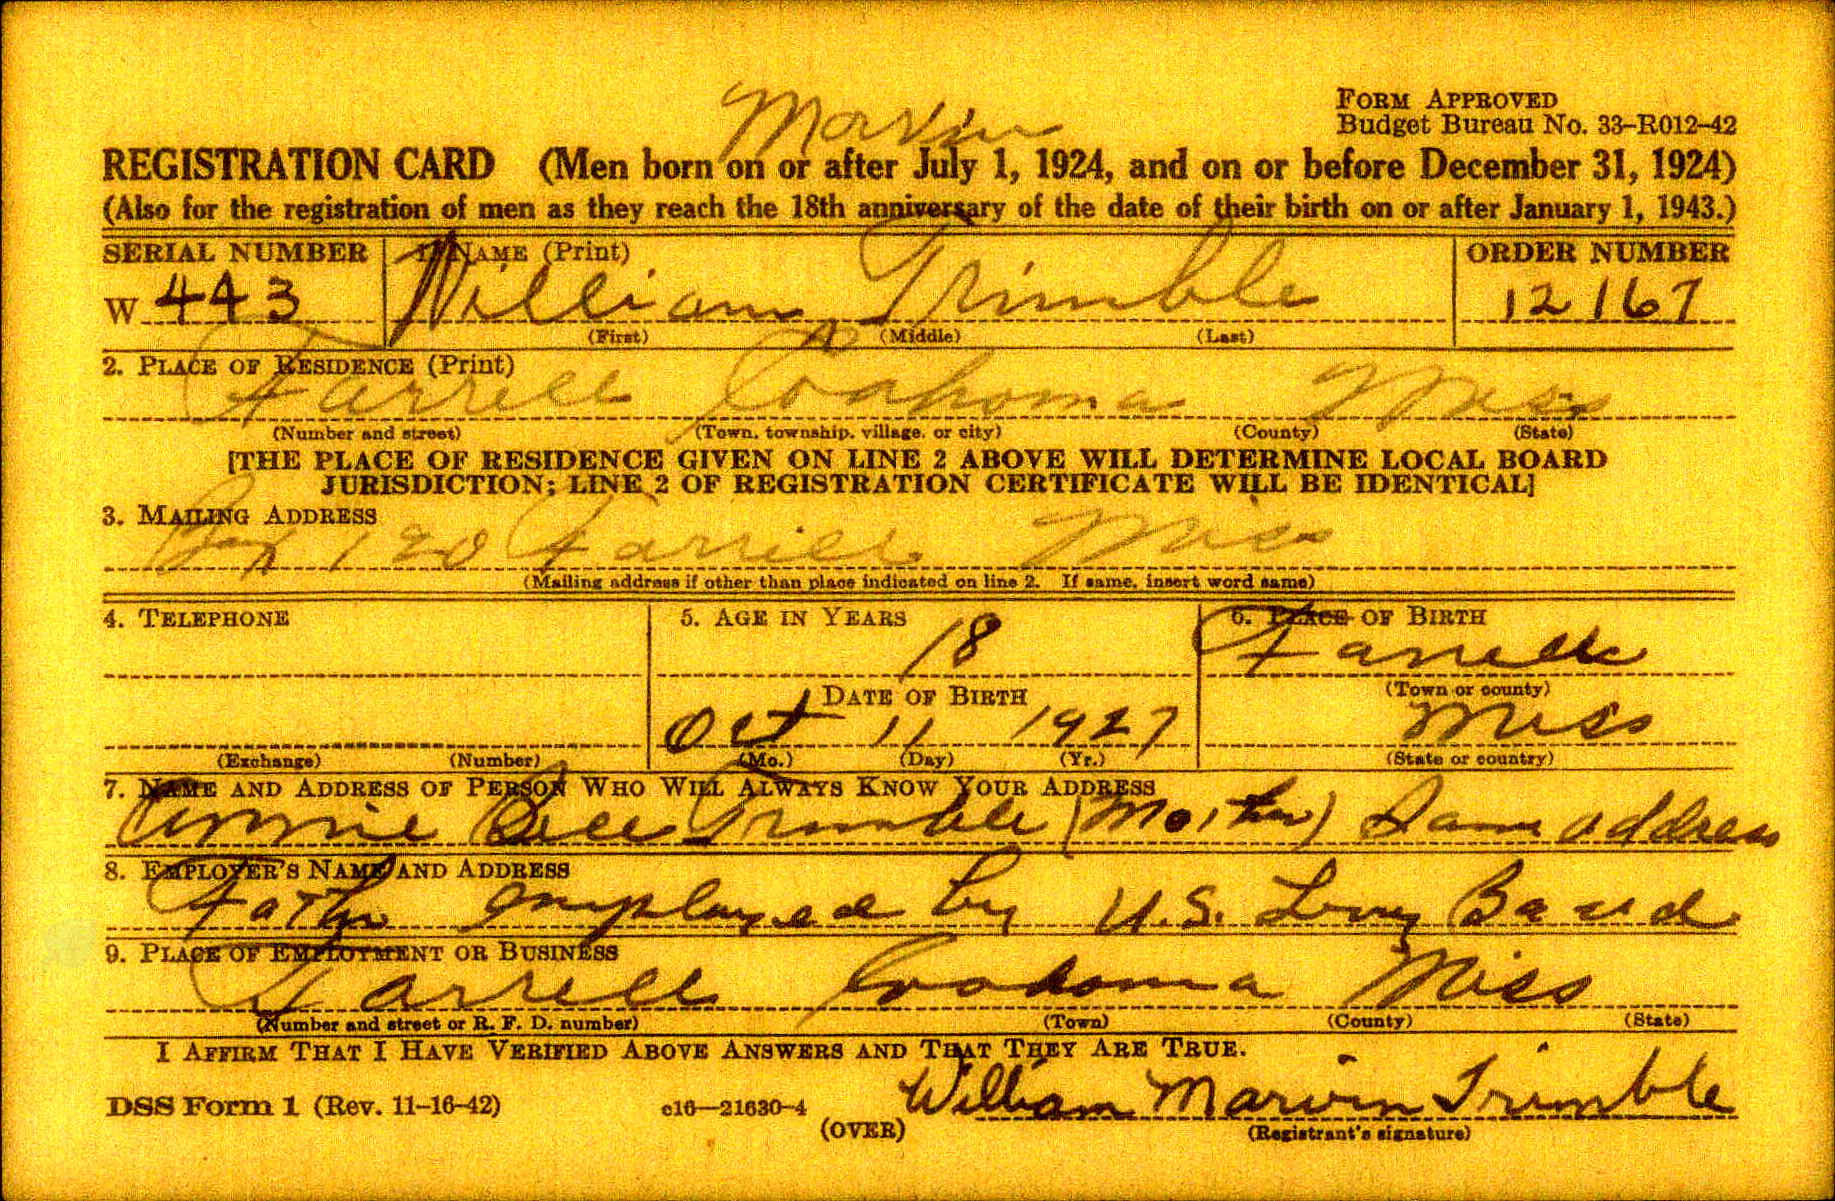 Marvin
FORM APPROVED
Budget Bureau No. 33–R012–42
REGISTRATION CARD (Men born on or after July 1, 1924, and on or before December 31, 1924)
(Also for the registration of men as they reach the 18th anniversary of the date of their birth on or after January 1, 1943.)
SERIAL NUMBER 1. NAME (Print) ORDER NUMBER
W 443 William Trimble 12167
(First) (Middle) (Last)
2. PLACE OF RESIDENCE (Print)
Farrell Coahoma Miss
(Number and street) (Town, township, village, or city) (County) (State)
[THE PLACE OF RESIDENCE GIVEN ON LINE 2 ABOVE WILL DETERMINE LOCAL BOARD
JURISDICTION; LINE 2 OF REGISTRATION CERTIFICATE WILL BE IDENTICAL]
3. MAILING ADDRESS
Box 120 Farrell Miss
(Mailing address if other than place indicated on line 2. If same, insert word same)
4. TELEPHONE 5. AGE IN YEARS 6. PLACE OF BIRTH
18 Farrell
DATE OF BIRTH (Town or county)
Oct 11 1927 Miss
(Exchange) (Number) (Mo.) (Day) (Yr.) (State or country)
7. NAME AND ADDRESS OF PERSON WHO WILL ALWAYS KNOW YOUR ADDRESS
Annie Bell Trimble (Mother) Same address
8. EMPLOYER'S NAME AND ADDRESS
Father employed by U.S. Board
9. PLACE OF EMPLOYMENT OR BUSINESS
Farrell Coahoma Miss
(Number and street or R. F. D. number) (Town) (County) (State)
I AFFIRM THAT I HAVE VERIFIED ABOVE ANSWERS AND THAT THEY ARE TRUE.
William Marvin Trimble
DSS Form 1 (Rev. 11–16–42) c16—21630-4
(OVER) (Registrant's signature)